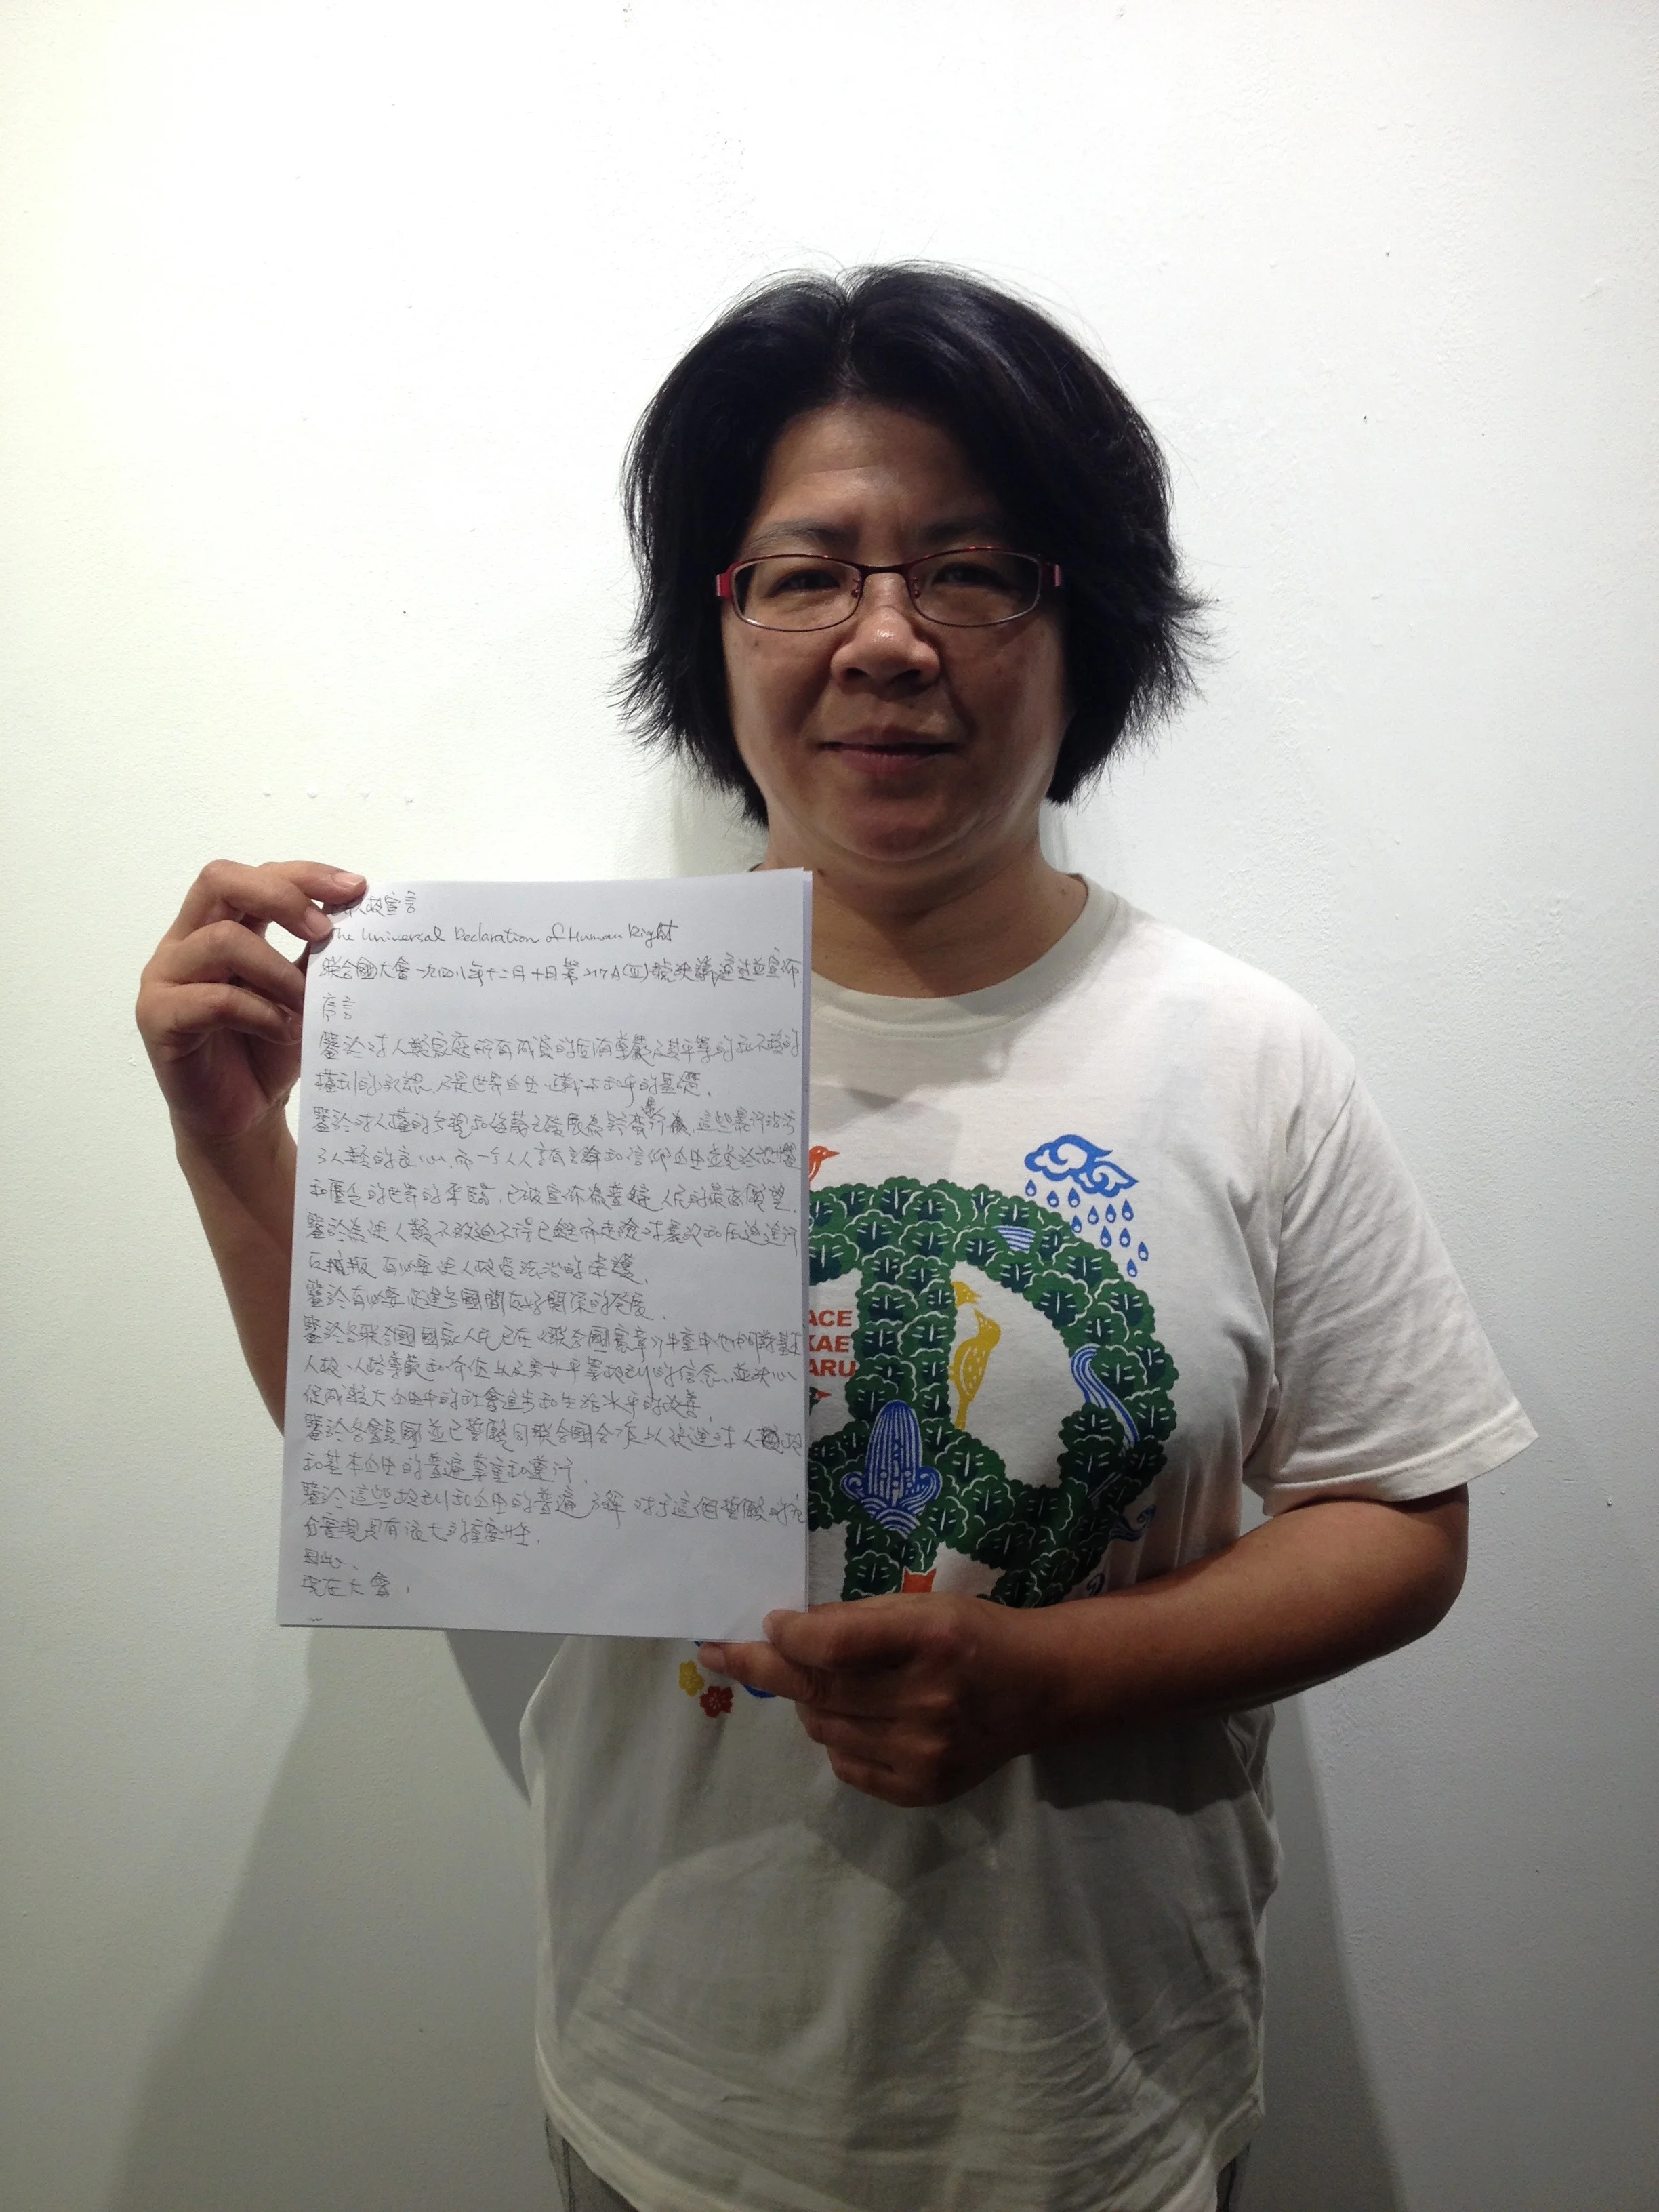 人权宣言
The Universal Declaration of Human Right
联合國大會一九四八年十二月十日第217A(III)號決議通過並宣佈
序言
鑒於对人類家庭所有成員的固有尊嚴及其平等的和不移的
權利的承認,乃是世界自由、正義与和平的基礎,
鑒於对人權的无視和侮蔑已發展為野蛮暴行,這些暴行玷污
了人類的良心,而一个人人享有言論和信仰自由並免於恐懼
和匱乏的世界的來臨,已被宣佈為普通人民的最高願望,
鑒於為使人類不致迫不得已鋌而走險对暴政和压迫進行
反抗 有必要使人权受法治的保護,
鑒於有必要促進各國間友好關係的發展,
鑒於各联合國國家人民已在《联合國憲章》中重申他們對基本
人权、人格尊嚴和价值以及男女平等权利的信念,並決心
促成較大自由中的社會進步和生活水平的改善,
鑒於各會員國並已誓願同联合國合作以促進对人权
和基本自由的普遍尊重和遵行,
鑒於這些权利和自由的普遍了解对于這個誓願的充
分實現具有很大的重要性,
因此,
現在大會,
ACE
KAE
ARU